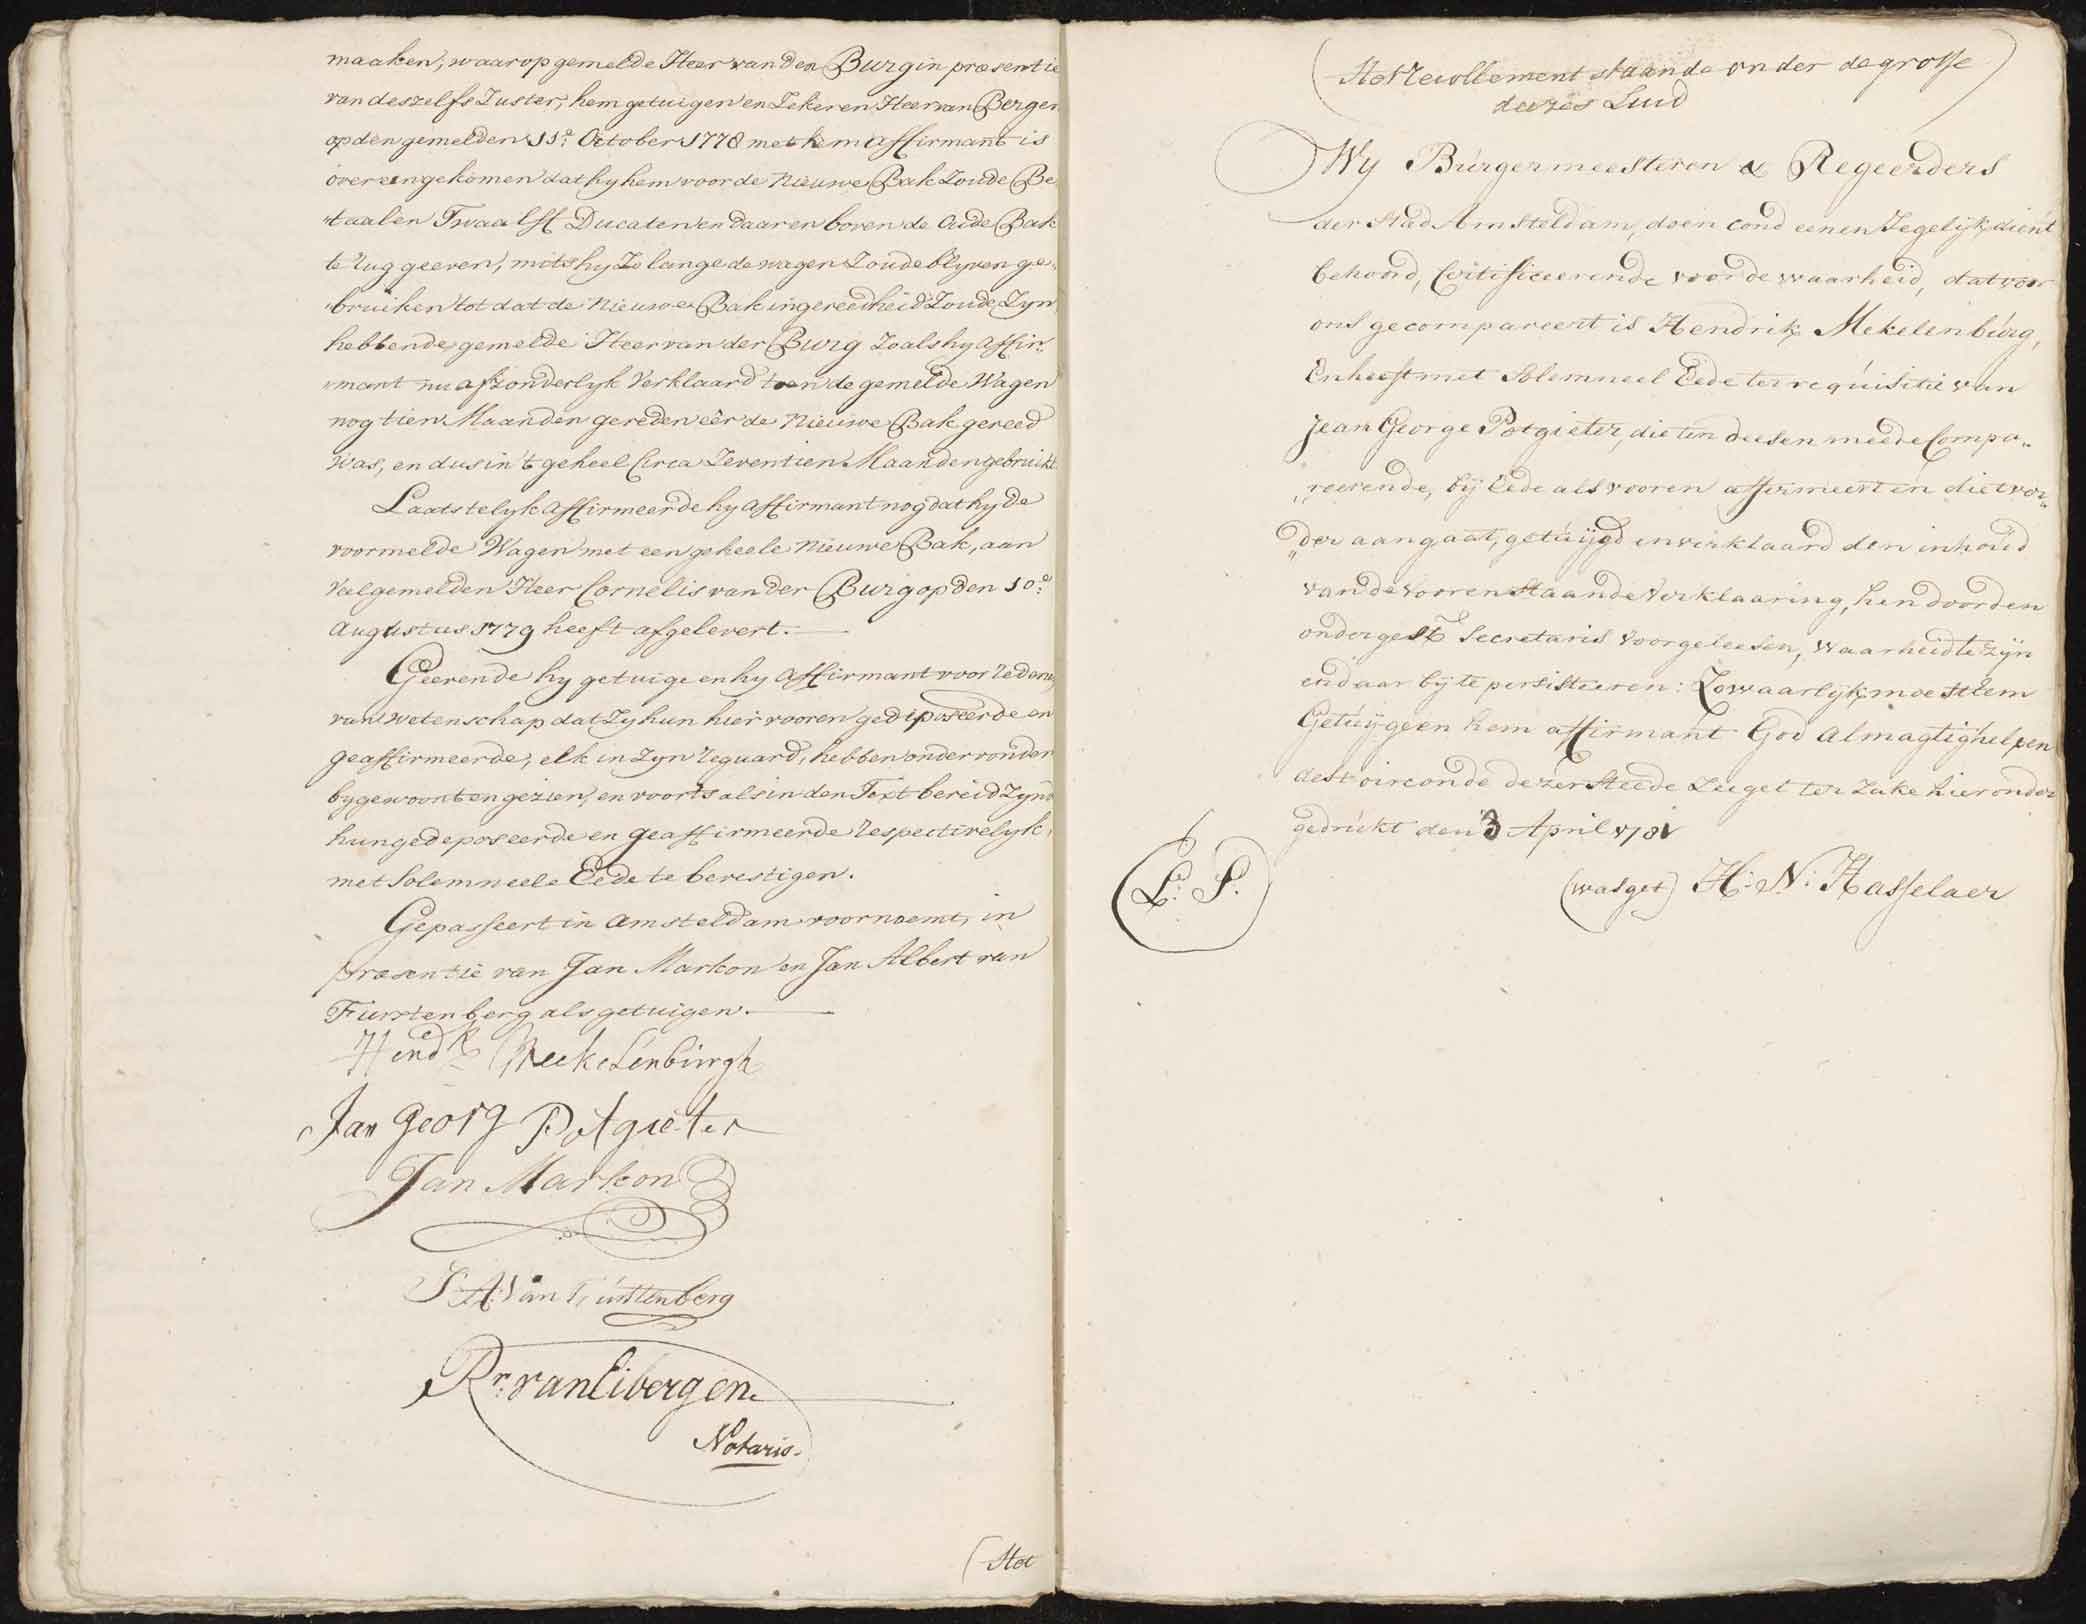 maaken, waarop gemelde Heer van den Burg in præsentie
van deszelfs Zuster, hem getuigen en Zekeren Heer van Bergen
op den gemelden 11e. October 1778 met hem affirmant is
overeengekomen dat hy hem voor de Nieuwe Bak Zoude Be
taalen Twaalff Ducaten en daar en boven de Oude Bak
te rug geeven, mits hy Zo lange de wagen Zoude blyven ge-
bruiken tot dat de Nieuwe Bak in gereedheid Zoude Zyn
hebbende gemelde Heer van der Burg Zoals hy affir-
mant nu afzonderlyk Verklaard toen de gemelde Wagen
nog tien Maanden gereden eer de Nieuwe Bak gereed
was, en dus in 't geheel Circa Zeventien Maanden gebruikt
Laatstelyk affirmeerde hy affirmant nog dat hy de
voormelde Wagen met een geheele Nieuwe Bak, aan
Welgemelden Heer Cornelis van der Burg op den 10e.
Augustus 1779 heeft afgelevert.
Geevende hy getuige en hy affirmant voor redenen
van wetenschap dat Zy hun hier vooren gedeposeerde en
geaffirmeerde, elk in Zyn reguard, hebben ondervonden
bygewoont en gezien, en voorts als in den Text bereid Zyn
hun gedeposeerde en geaffirmeerde respectivelyk
met Solemneele Eede te bevestigen.
Gepasseert in Amsteldam voornoemt, in
præsentie van Jan Markon en Jan Albert van
Furstenberg als getuigen.
Hendk Meekelenburgh
Jan Georg Potgieter
Jan Markon
J. A. Van Furstenberg
Rr. van Eibergen
Notaris.
(Het
(Het Recollement staande onder de grosse
dezes Luid)
Wy Burgermeesteren & Regeerders
der Stad Amsteldam, doen cond eenen Iegelyk dient
behoord, Certificeerende voor de waarheid, dat voor
ons gecompareert is Hendrik Mekelenburg,
En heeft met Solemneel Eede ter requisitie van
Jean George Potgieter, die ten deesen meede Compa-
reerende, bij Eede als vooren affirmeert en die t vor-
der aangaat, getuijgd en verklaard den inhoud
van de voorenstaande Verklaaring, hen door den
onderget. Secretaris voorgeleesen, waarheid te zyn
en daar bij te persisteeren: Zo waarlijk moest hem
Getuijge en hem affirmant God Almagtig helpen
des t' oirconde dezer Steede Zeegel ter Zake hier onder
gedrukt den 3 April 1781
L. S.
(was get) H. N. Hasselaer